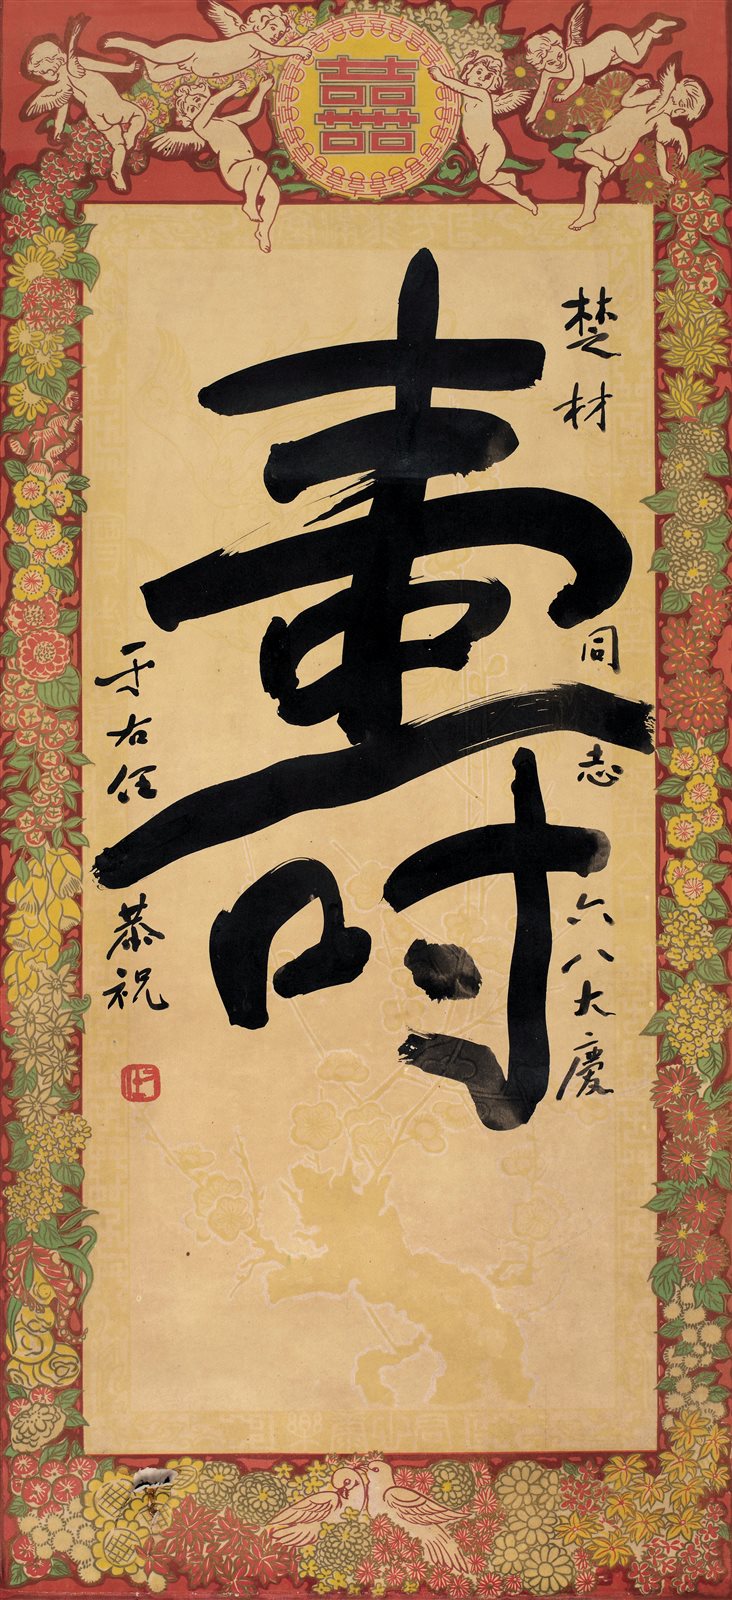 囍
壽
楚材同志六八大慶
于右任恭祝